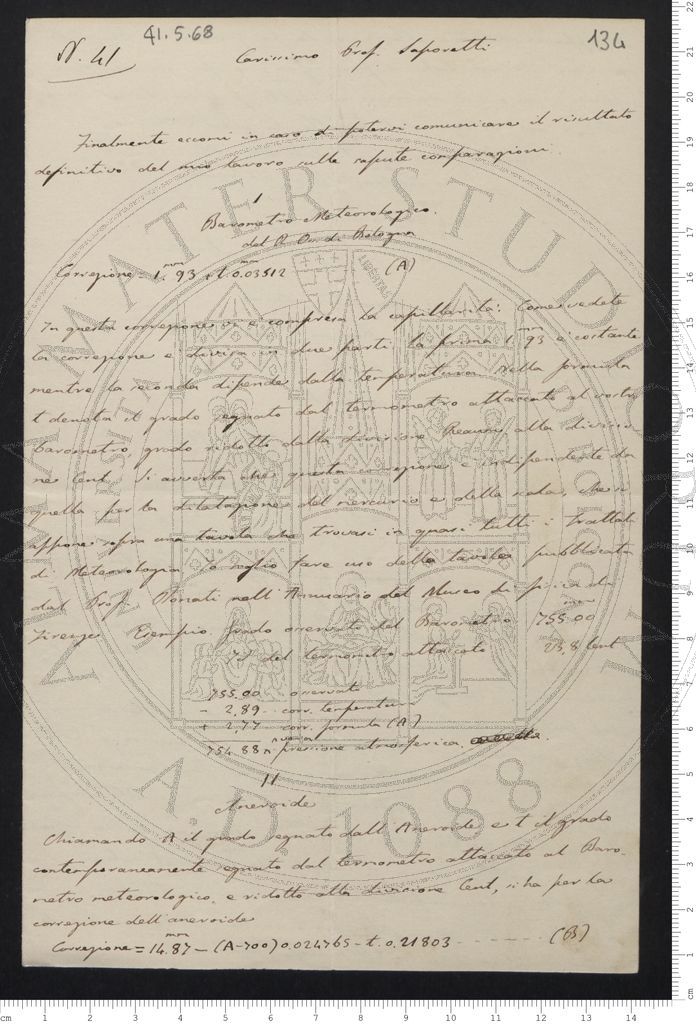 41.5.68
134
N. 41
Carissimo Prof. Saporetti
Finalmente eccomi in caso di potervi comunicare il risultato
definitivo del mio lavoro sulle sapute comparazioni.
I
Barometro Meteorologico.
del R. Oss. di Bologna
Correzione = 1.93 + t. 0.03512 (A)
mm mm
In questa correzione vi è compresa la capillarità: Come vedete
la correzione è divisa in due parti la prima 1.93 è costante
mm
mentre la seconda dipende dalla temperatura. Nella formula
t denota il grado segnato dal termometro attaccato al vostro
barometro, grado ridotto dalla divisione Reaum. alla divisio
ne Cent. Si avverta che questa correzione è indipendente da
quella per la dilatazione del mercurio e della scala, che si
appone sopra una tavola che trovasi in quasi tutti i trattati
di Meteorologia. Io soglio fare uso della tavola pubblicata
dal Prof. Donati nell'Annuario del Museo di fisica di
Firenze. Esempio. Grado osservato del Barometro 755.00
mm
Id del termometro attaccato 23,8 Cent
755.00 osservato
- 2.89 corr. temperatura
+ 2.77 corr. formula (A)
754.88 pressione atmosferica.
II
Aneroide
Chiamando A il grado segnato dall'Aneroide e t il grado
contemporaneamente segnato dal termometro attaccato al Baro-
metro meteorologico, e ridotto alla divisione Cent, si ha per la
correzione dell'aneroide
Correzione = 14.87 - (A-700) 0.024765 - t. 0.21803 - - - - - - (B)
mm
ALMA MATER STUDIORUM
A.D. 1088
cm 1 2 3 4 5 6 7 8 9 10 11 12 13 14
cm 1 2 3 4 5 6 7 8 9 10 11 12 13 14 15 16 17 18 19 20 21 22